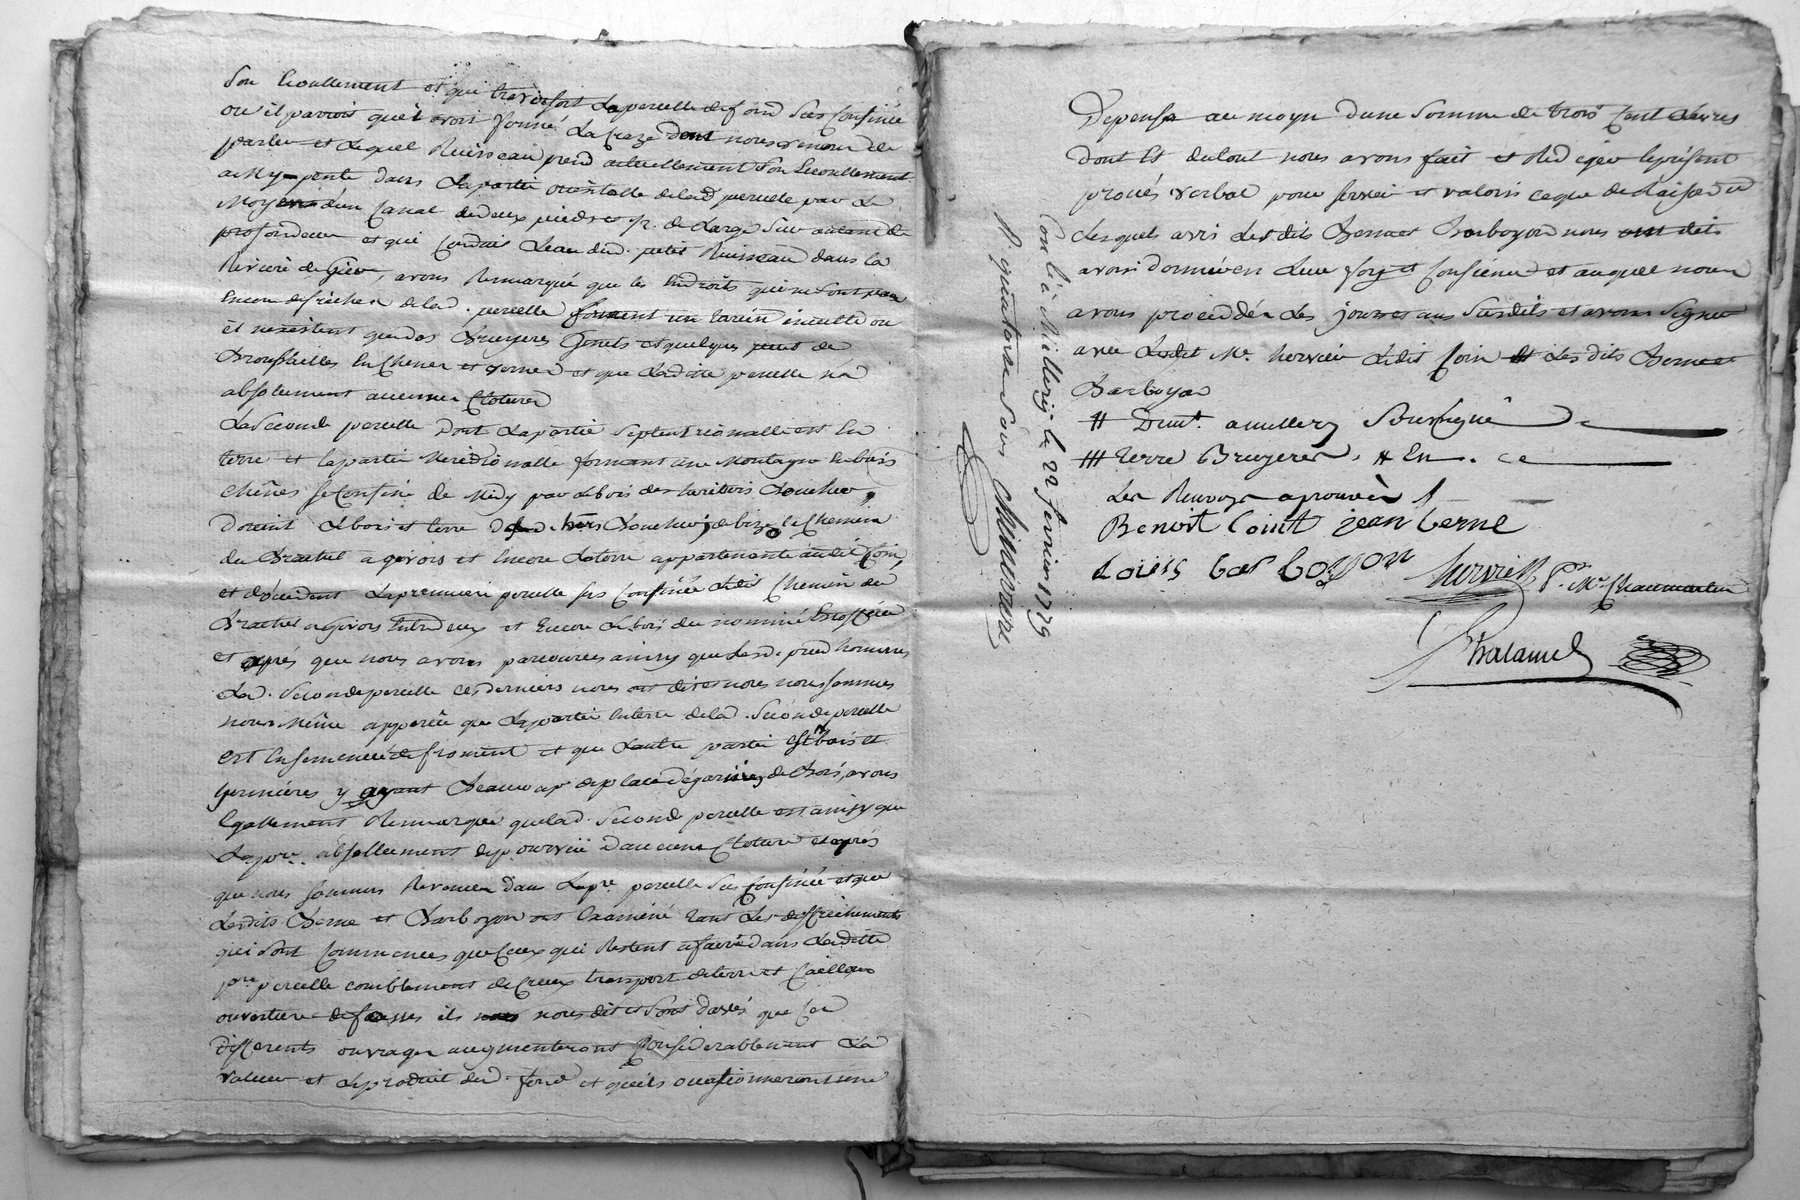 Son Ecoullement et qui traversoit La parcelle de fond Sus Confinée
ou il paroit qu'il avoit formé La Creze dont nous venons de
parler et Lequel Ruisseau prend actuellement Son Ecoullement
a My pente dans La partie orientalle de lad. parcelle par Le
Moyen d'un Canal de deux pieds et de Large Sur autant de
profondeur et qui Conduit L'eau dud. petit Ruisseau dans la
Riviere de Gier, avons Remarqué que les Endroits qui ne Sont pas
Encore defrichés de lad. parcelle forment un tarein inculte ou
il n'existent que des Bruyeres Genets et quelques de
Broussailles En Chene et et que Ladite parcelle n'a
absolument aucunes Clotures
La Seconde parcelle Dont La partie Septentrionalle est En
terre et la partie Meridionalle formant une Montagne En bois
Chênes Se Confine de Midy par Le bois des heritiers
d'orient Le bois et terre dud. de bize Le Chemin
de a givors et Encore La terre appartenante audit Coin,
et d'occident La premiere parcelle Sus Confinée Ledit Chemin de
a Givors Entre deux et Encore Le bois du nommé
et aprés que nous avons parcourus ainsy que Lesd. prud'hommes
Lad. Seconde parcelle ces derniers nous ont dit et nous nous sommes
nous Même apperçu que La partie En terre de lad. Seconde parcelle
est Ensemencée de froment et que L'autre partie est bois et
y ayant Beaucoup de place dégarnies de Bois, avons
Egallement Remarqué que lad. Seconde parcelle est ainsy que
La pre. absollument depourvüe D'aucune Cloture et aprés
que nous Sommes Revenus dans La pre. parcelle Sus Confinée et que
Lesdits Berne et Barboyon ont Examiné tant Les deffrichements
qui Sont Commencés que Ceux qui Restent a faire dans Ladite
pre. parcelle comblement de Creux transport de terre et Cailloux
ouverture de fosses ils nous ont dit et que Ces
differents ouvrages augmenteront Considerablement La
valeur et Le produit dud. fond et qu'ils occasionneront une
Depense au moyn d'une Somme de trois Cent Livres
Dont Et du tout nous avons fait et Redigée le présent
procés verbal pour Servir et valoir ce que de Raison du
Lesquels avis Lesdits Berne et Barboyon nous ont dits
avoir donné en Leur foy et Consience et auquel nous
avons procedder Les jours et ans Susdits et avons Signé
avec Ledit Me. hervier Ledit Coin Et Les dits Berne et
Barboyon
# Demt. a millery Soussigné
### terre Bruyeres, # En
Les Renvoys aprouvés
Benoit Coint jean berne
Louis barboyon hervier pr. Me. Chaumartin
Thalamel
Con lé a Millery le 22 fevrier 1779
R quatorze Sous Chinuraire